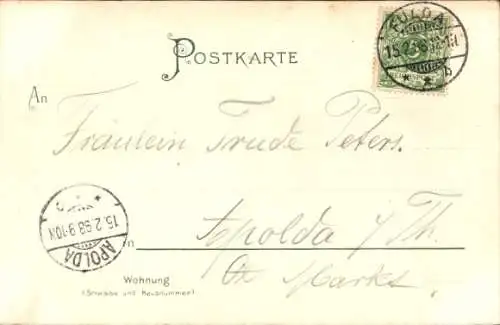 POSTKARTE
FULDA
15.2.98
An
Fräulein Trude Peters.
15.2.98.9-10N
APOLDA
in
Apolda i/Th.
Wohnung
(Strasse und Hausnummer)